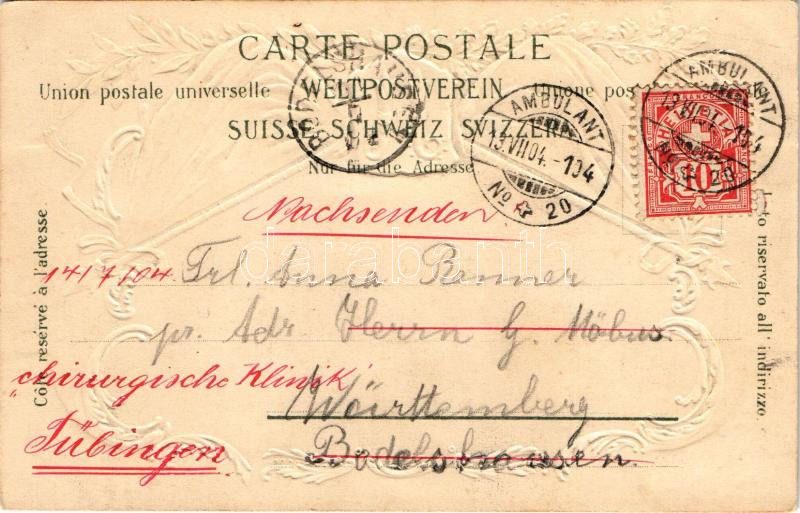 CARTE POSTALE
Union postale universelle WELTPOSTVEREIN Unione pos
SUISSE SCHWEIZ SVIZZERA
Nur für die Adresse
AMBULANT
13.VII04.-104
No 20
AMBULANT
104
No 20
FRANCO
HELVETIA
10
Côté reservé à l'adresse
to riservato all' indirizzo
Nachsenden
14/7/04. Frl. Anna Banner
pr. Adr Herrn G. Möbus
"chirurgische Klinik"
Württemberg
Tübingen
Bodelshausen.
darabanth